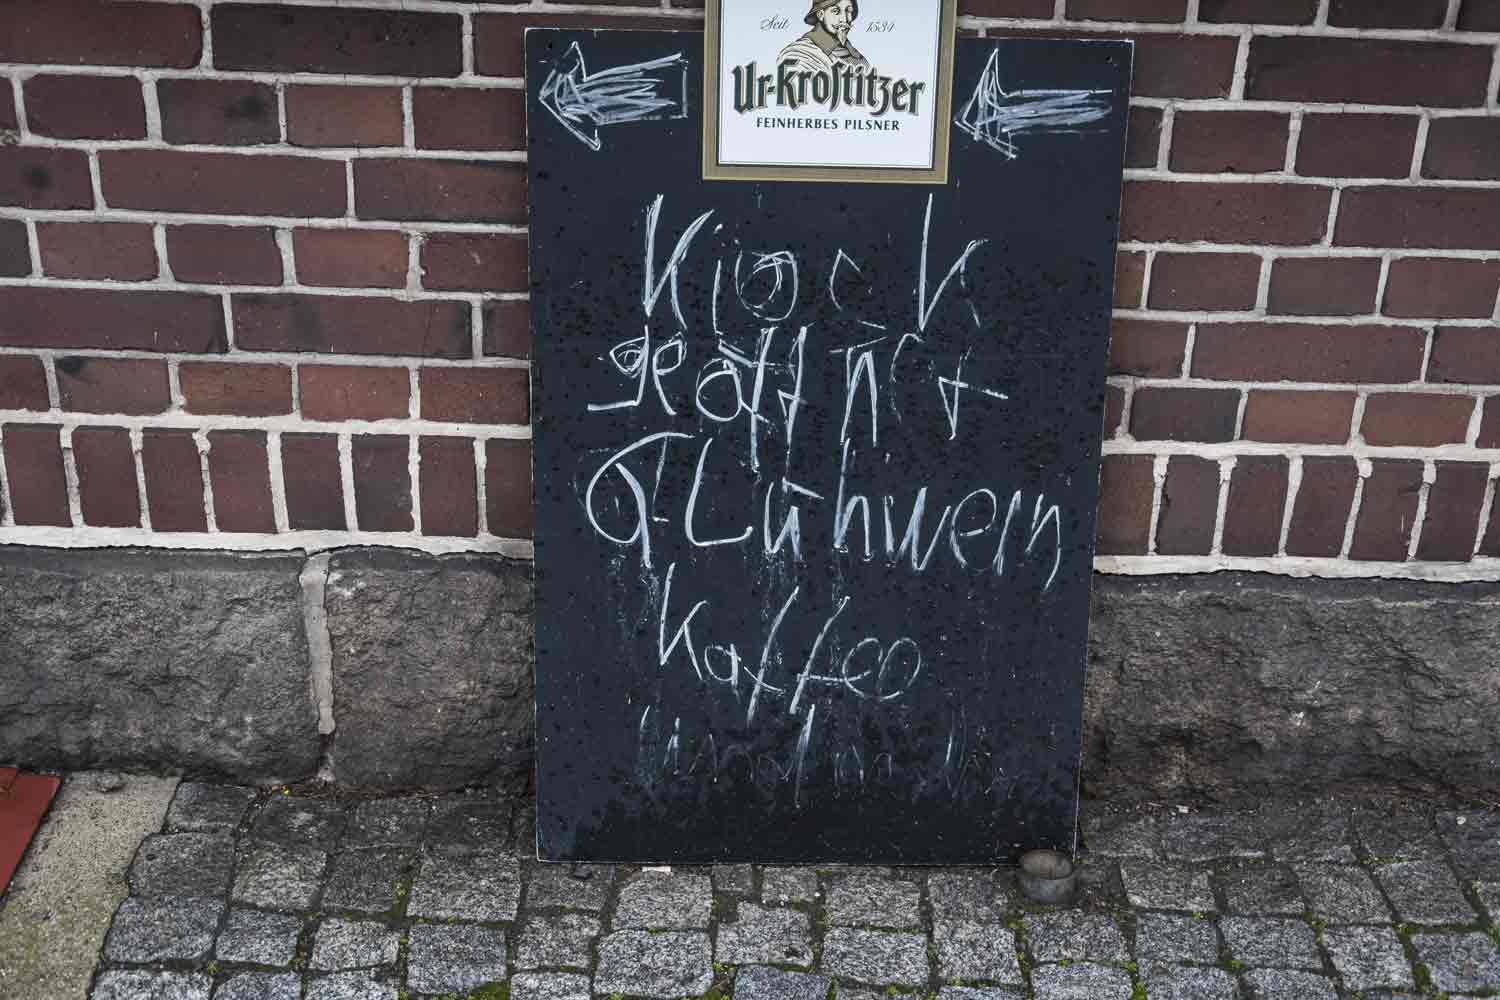 Seit 1534
Ur-Krostitzer
FEINHERBES PILSNER
Kiosk
geöffnet
Glühwein
Kaffee